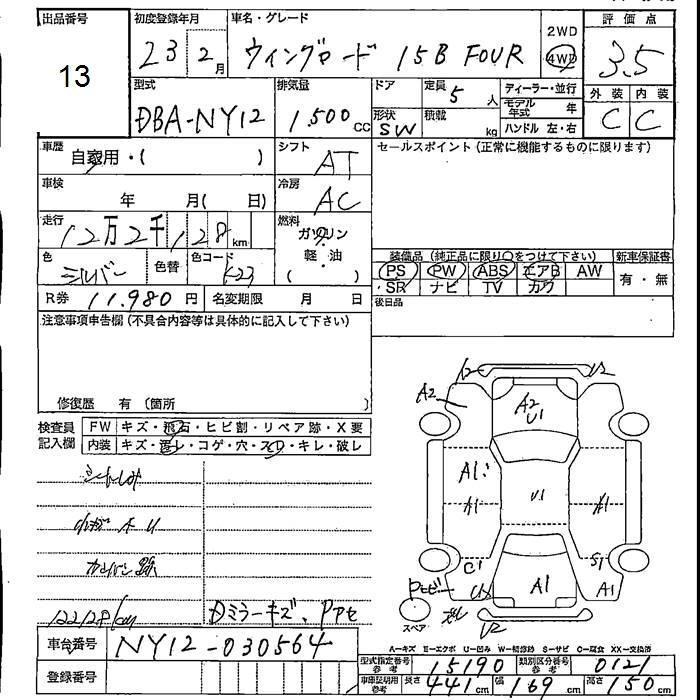 出品番号
13
初度登録年月
23 2月
車名・グレード
ウィングロード 15B FOUR
2WD
4WD
評価点
3.5
外装 内装
C C
型式
DBA-NY12
排気量
1,500cc
ドア
定員 5人
形状 SW
積載 kg
ディーラー・並行
モデル年式 年
ハンドル 左・右
車歴
自家用・( )
シフト
AT
セールスポイント(正常に機能するものに限ります)
車検
年 月( 日)
冷房
AC
走行
12万2千128km
燃料
ガソリン
軽・油
( )
色
シルバー
色替
色コード
K23
装備品(純正品に限り○をつけて下さい)
新車保証書
PS PW ABS エアB AW
SR ナビ TV カワ
有・無
R券 11,980円
名変期限 月 日
後日品
注意事項申告欄(不具合内容等は具体的に記入して下さい)
修復歴 有(箇所
検査員記入欄
FW キズ・飛石・ヒビ割・リペア跡・X要
内装 キズ・汚レ・コゲ・穴・スレ・キレ・破レ
カバン跡
122128km
Dミラーキズ、
A2
A2
U1
A1
A1
U1
A1
C1
S1
A1
A1
U2
スペア
A−キズ E−エクボ U−凹み W−補修跡 S−サビ C−腐食 XX−交換済
車台番号 NY12-030564
登録番号
型式指定番号 参考 15190
類別区分番号 参考 0121
車庫証明用 参考 長さ 441cm 幅 169cm 高さ 150cm